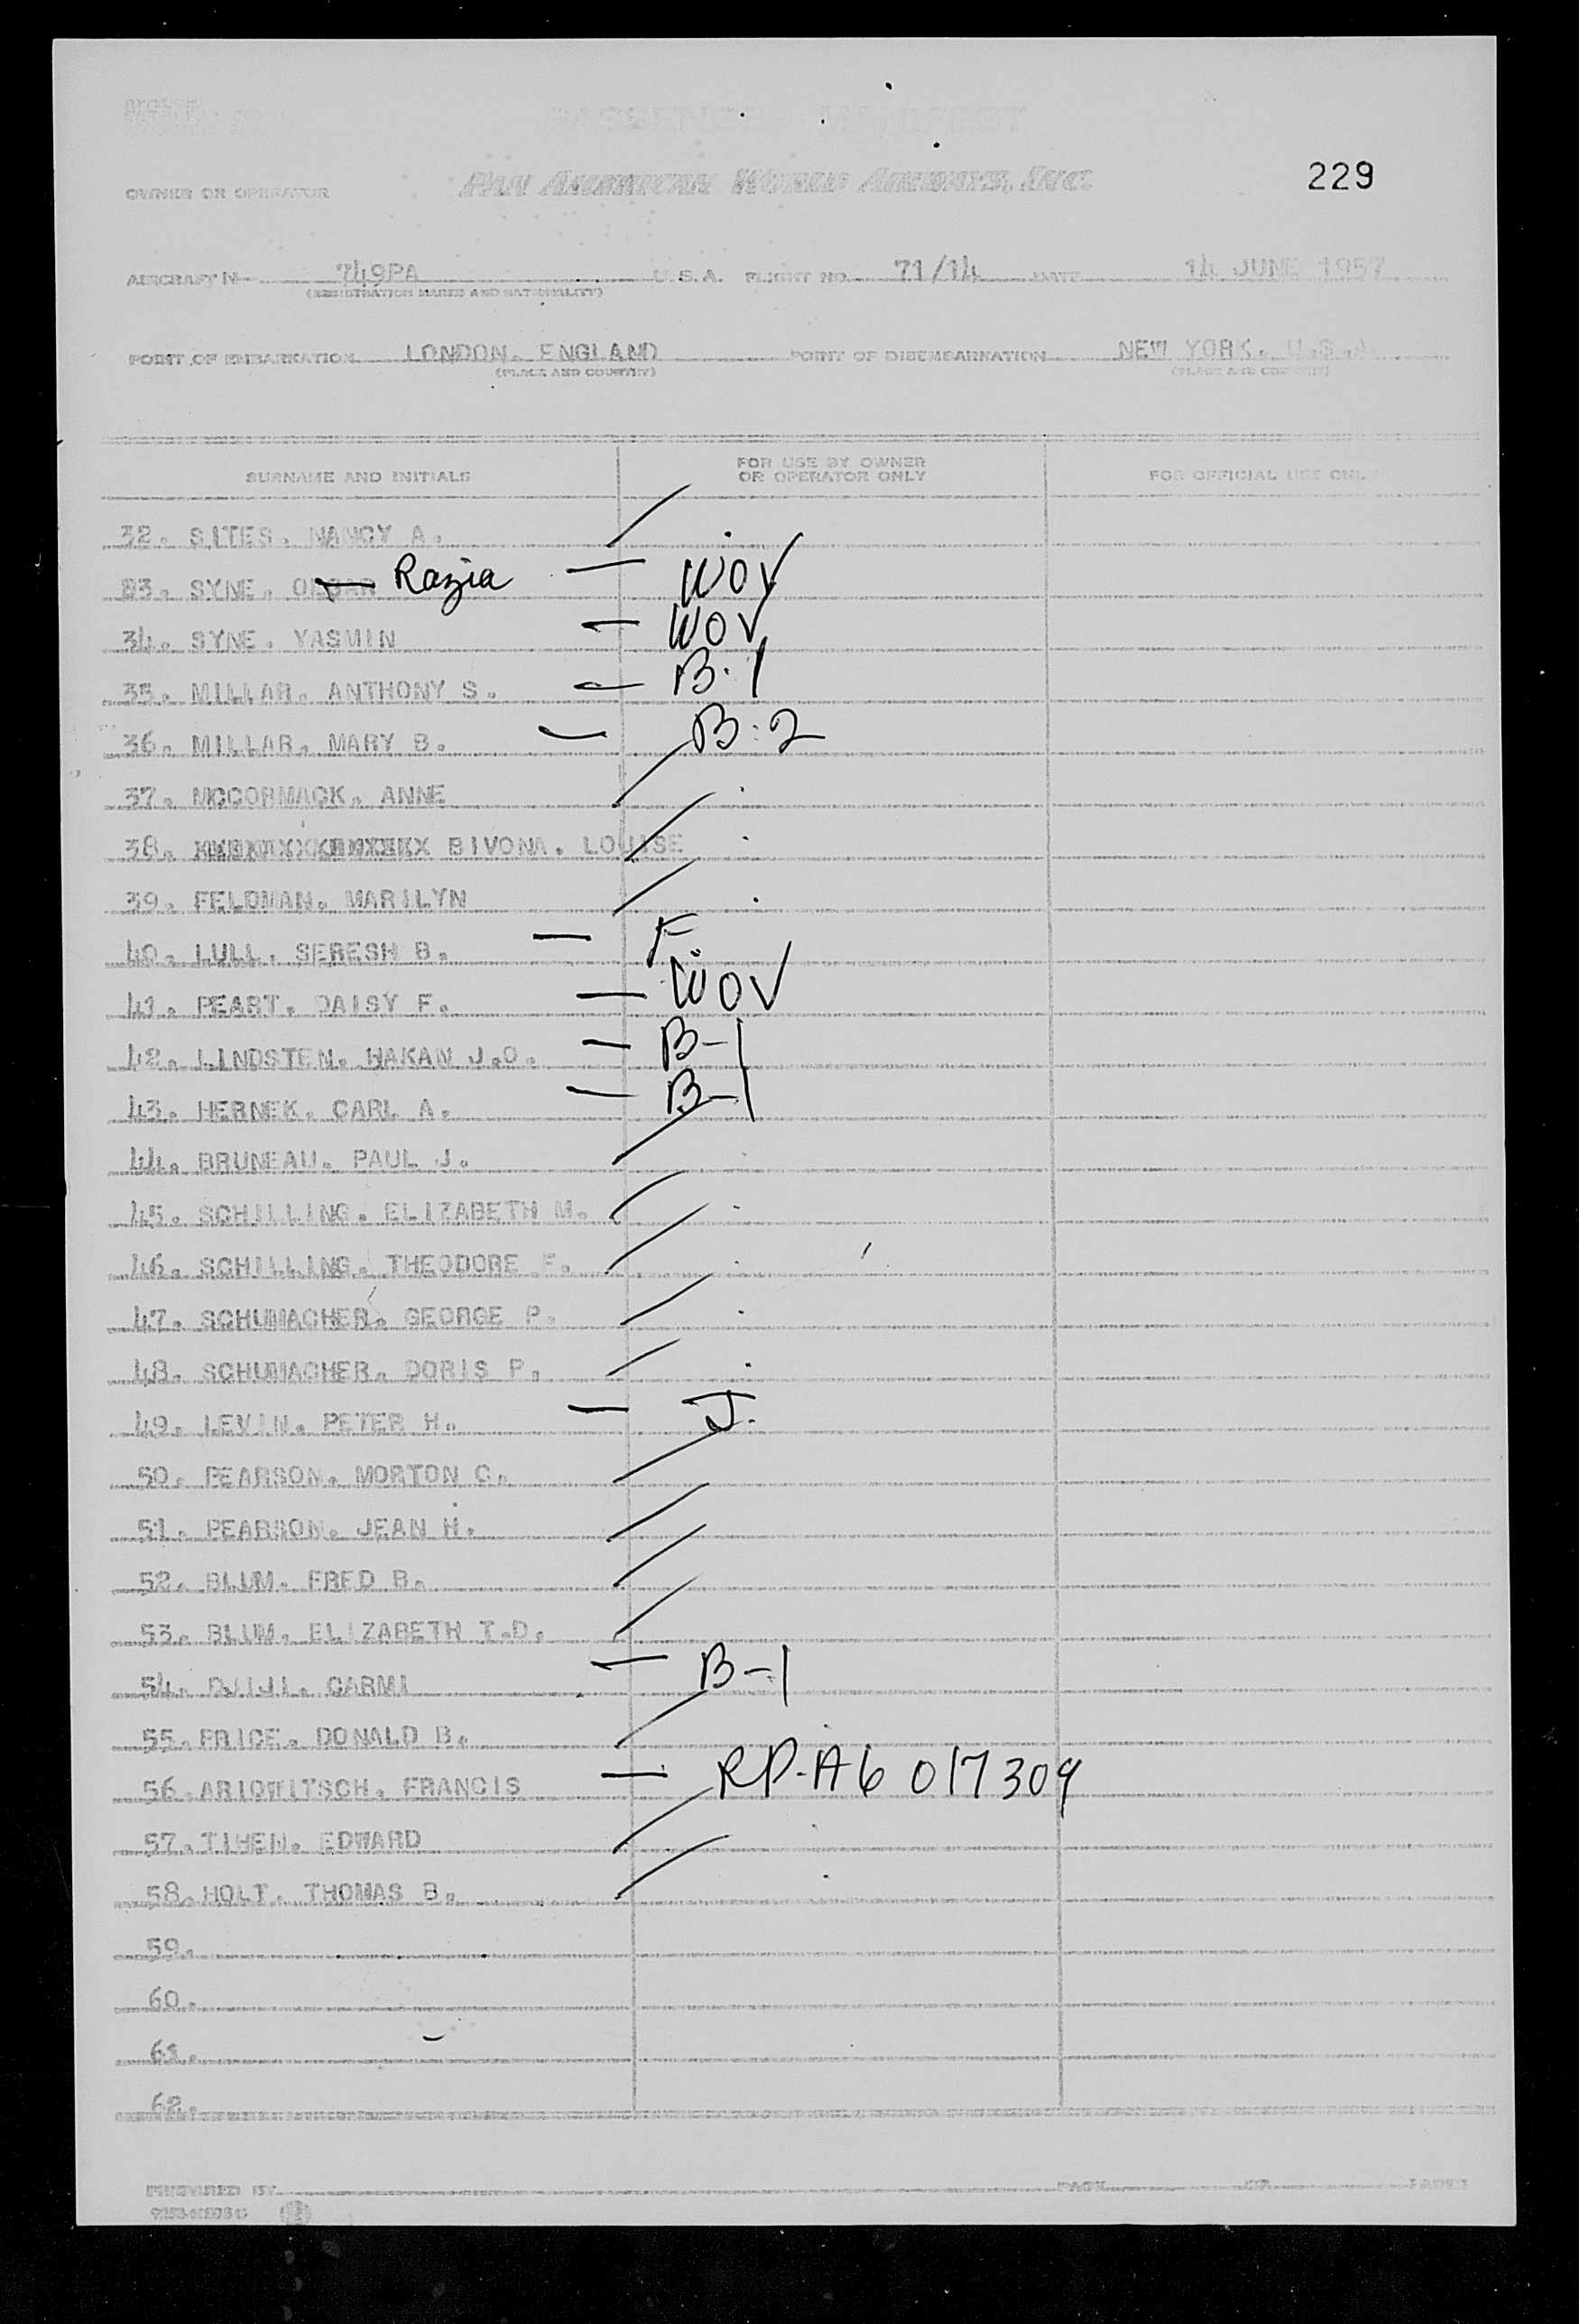 PASSENGER MANIFEST
OWNER OR OPERATOR PAN AMERICAN WORLD AIRWAYS, INC. 229
AIRCRAFT N- 749PA U.S.A. FLIGHT NO. 71/14 DATE 14 JUNE 1957
(REGISTRATION MARKS AND NATIONALITY)
POINT OF EMBARKATION LONDON. ENGLAND POINT OF DISEMBARKATION NEW YORK. U.S.A.
(PLACE AND COUNTRY) (PLACE AND COUNTRY)
SURNAME AND INITIALS FOR USE BY OWNER OR OPERATOR ONLY FOR OFFICIAL USE ONLY
32. SITES. NANCY A.
33. SYNE. Razia — WOV
34. SYNE. YASMIN — WOV
35. MILLAR. ANTHONY S. — B-1
36. MILLAR. MARY B. — B-2
37. MCCORMACK. ANNE
38. BIVONA. LOUISE
39. FELDMAN. MARILYN
40. LULL. SERESH B. — F.
41. PEART. DAISY F. — WOV
42. LINDSTEN. HAKAN J.O. — B-1
43. HERNEK. CARL A. — B-1
44. BRUNEAU. PAUL J.
45. SCHILLING. ELIZABETH M.
46. SCHILLING. THEODORE F.
47. SCHUMACHER. GEORGE P.
48. SCHUMACHER. DORIS P.
49. LEVIN. PETER H. — J.
50. PEARSON. MORTON C.
51. PEARSON. JEAN H.
52. BLUM. FRED B.
53. BLUM. ELIZABETH T.D.
54. DJIJI. CARMI — B-1
55. PRICE. DONALD B.
56. ARIOWITSCH. FRANCIS — RP-A6 017309
57. TIHEN. EDWARD
58. HOLT. THOMAS B.
59.
60.
61.
62.
PREPARED BY PAGE OF PAGES